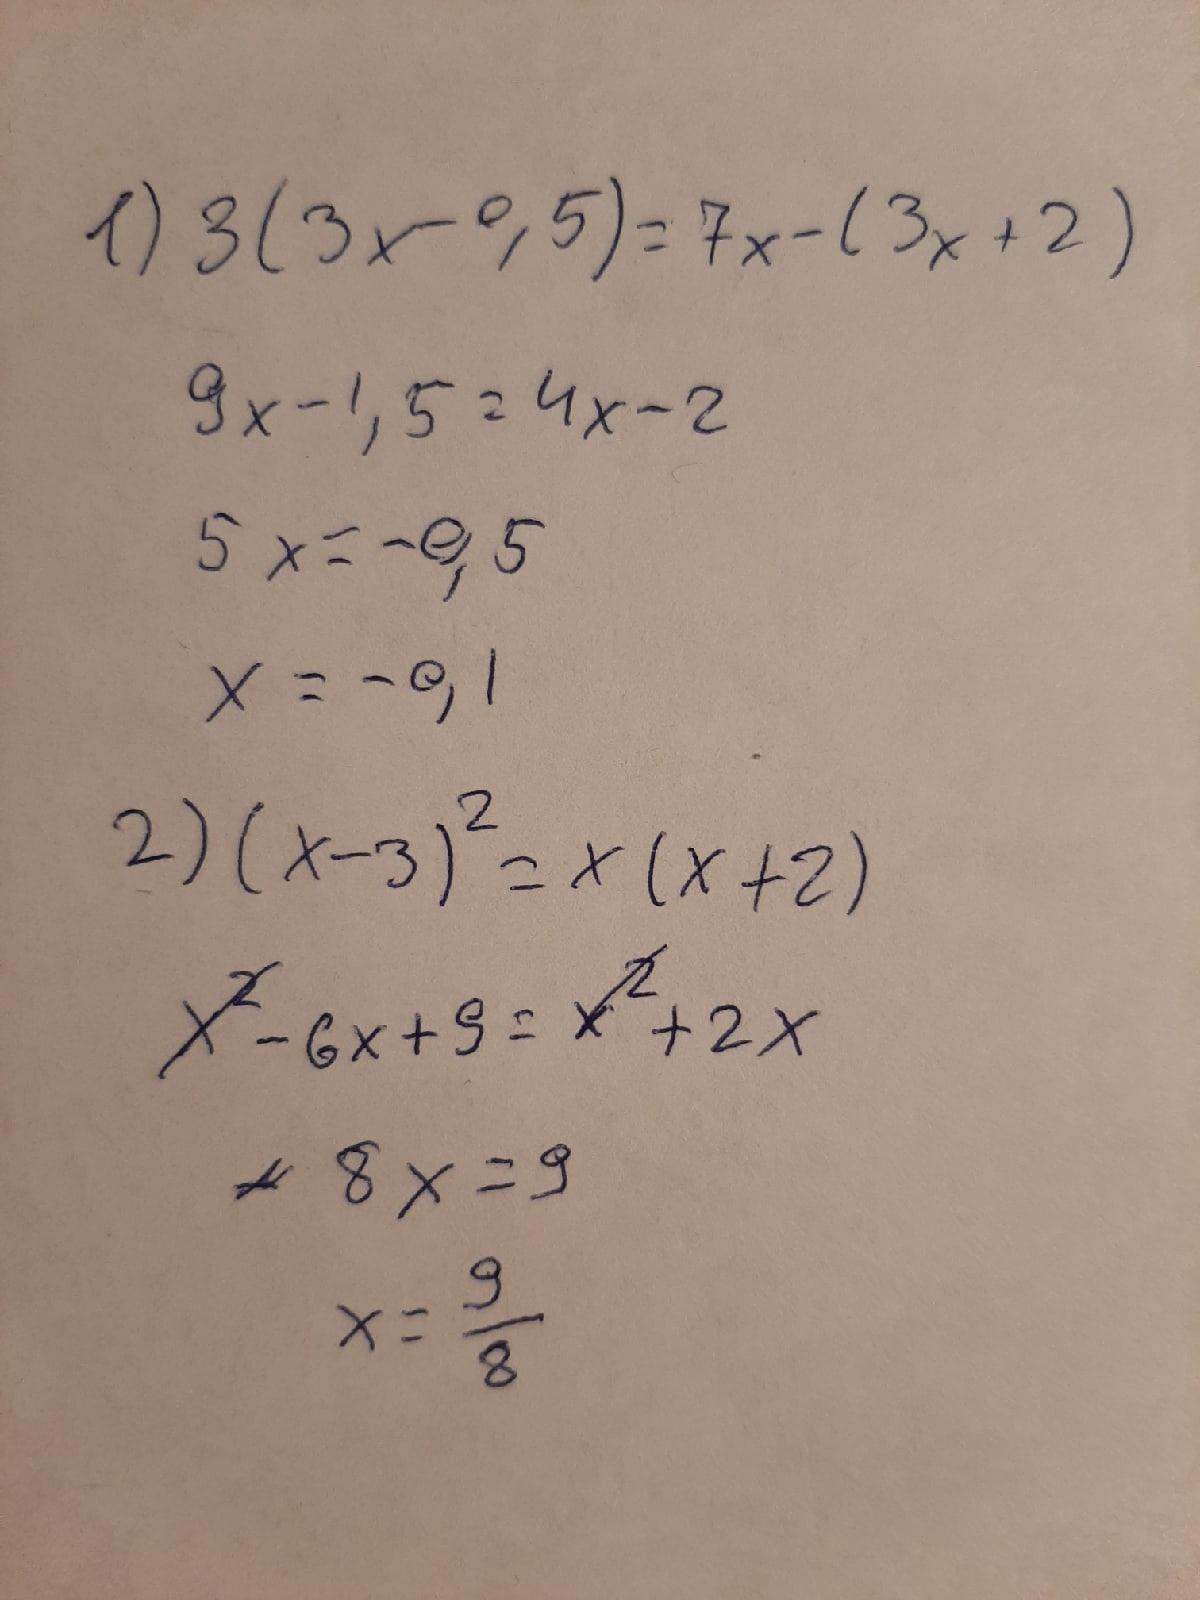 1) 3(3x-0,5)=7x-(3x+2)
9x-1,5=4x-2
5x=-0,5
x=-0,1
2) (x-3)²=x(x+2)
x²-6x+9=x²+2x
8x=9
x=9/8